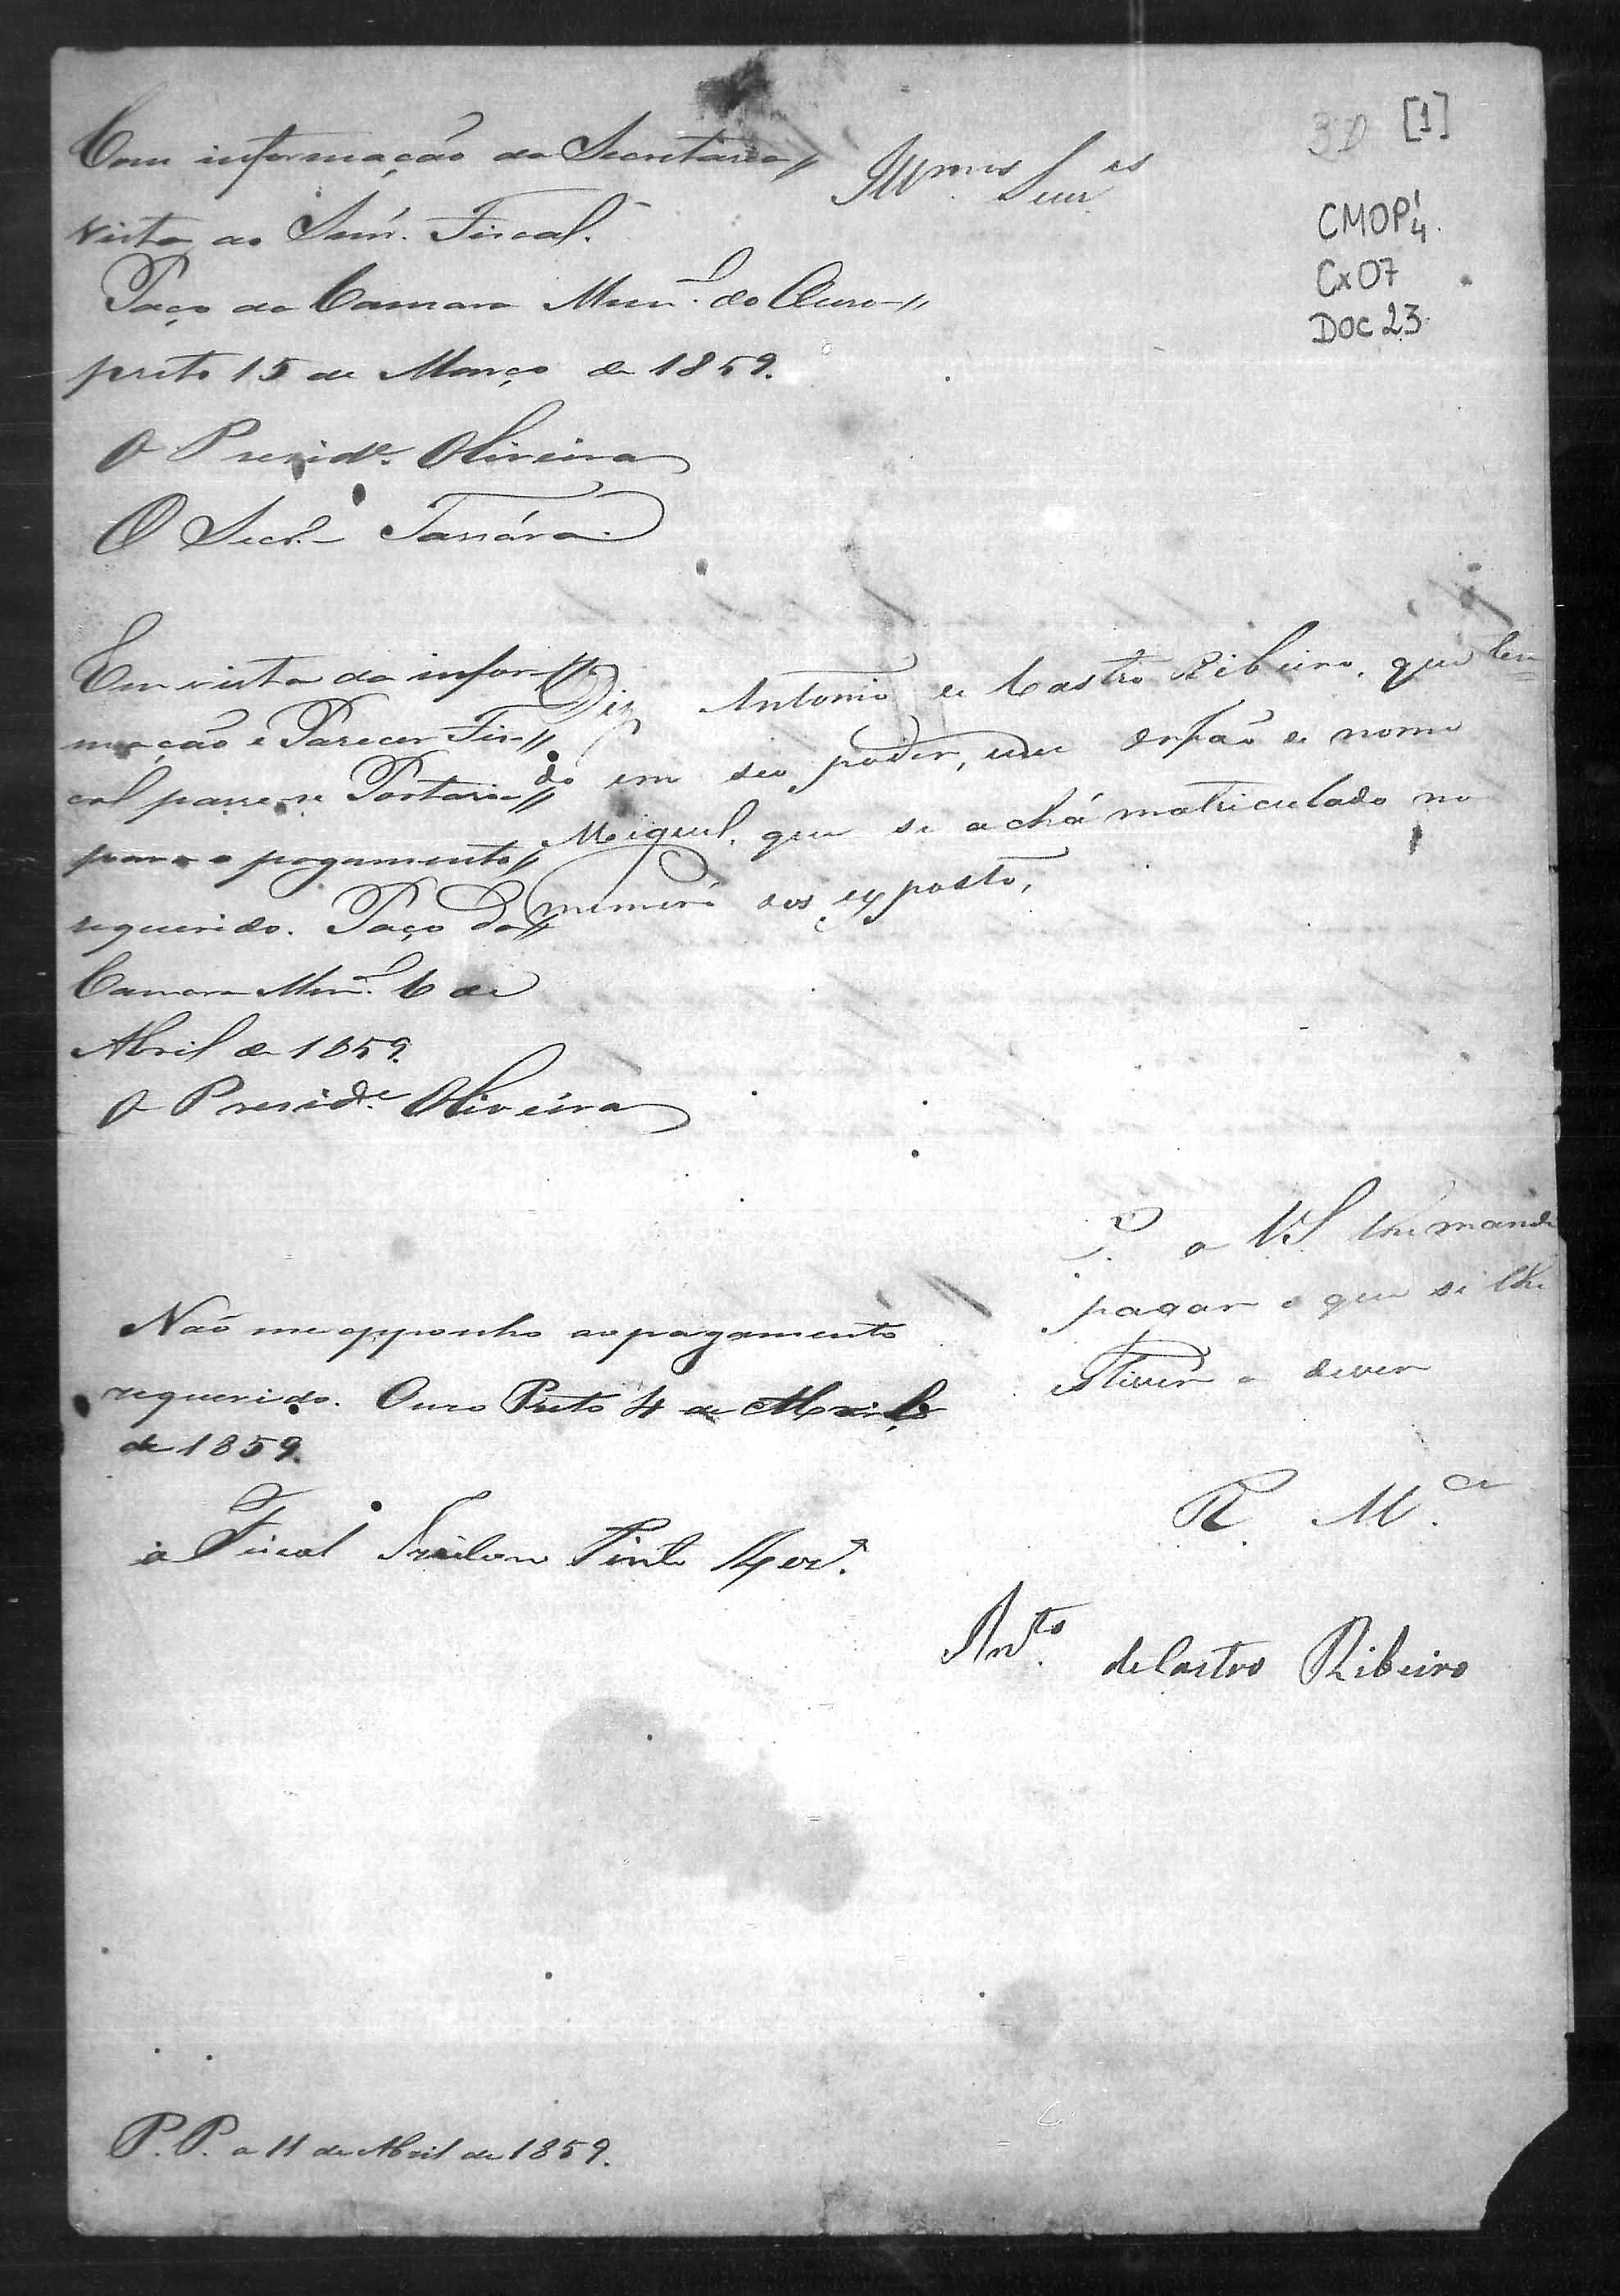 [1]
CMOP 1/4
Cx 07
DOC 23
Illmos Senres
Com informação da Secretaria //
vista ao Senr. Fiscal.
Paço da Camara Munl. do Ouro //
preto 15 de Março de 1859.
O Preside. Oliveira
O Secro.
Diz Antonio de Castro Ribeiro, que ten=
do em seu poder, um orfão de nome
Miguel, que se achá matriculado no
numero dos exposto,
P. a VS lhe mande
pagar o que se lhe
estiver a dever
R Mce.
Anto. de Castro Ribeiro
Em vista da infor //
mação e Parecer Fis //
cal passe-se Portaria //
para o pagamento //
requerido. Paço da //
Camara Munl. 6 de
Abril de 1859.
O Preside. Oliveira
Não me opponho ao pagamento
requerido. Ouro Preto 4 de
de 1859.
o Fiscal Pinto
P. P. a 11 de Abril de 1859.